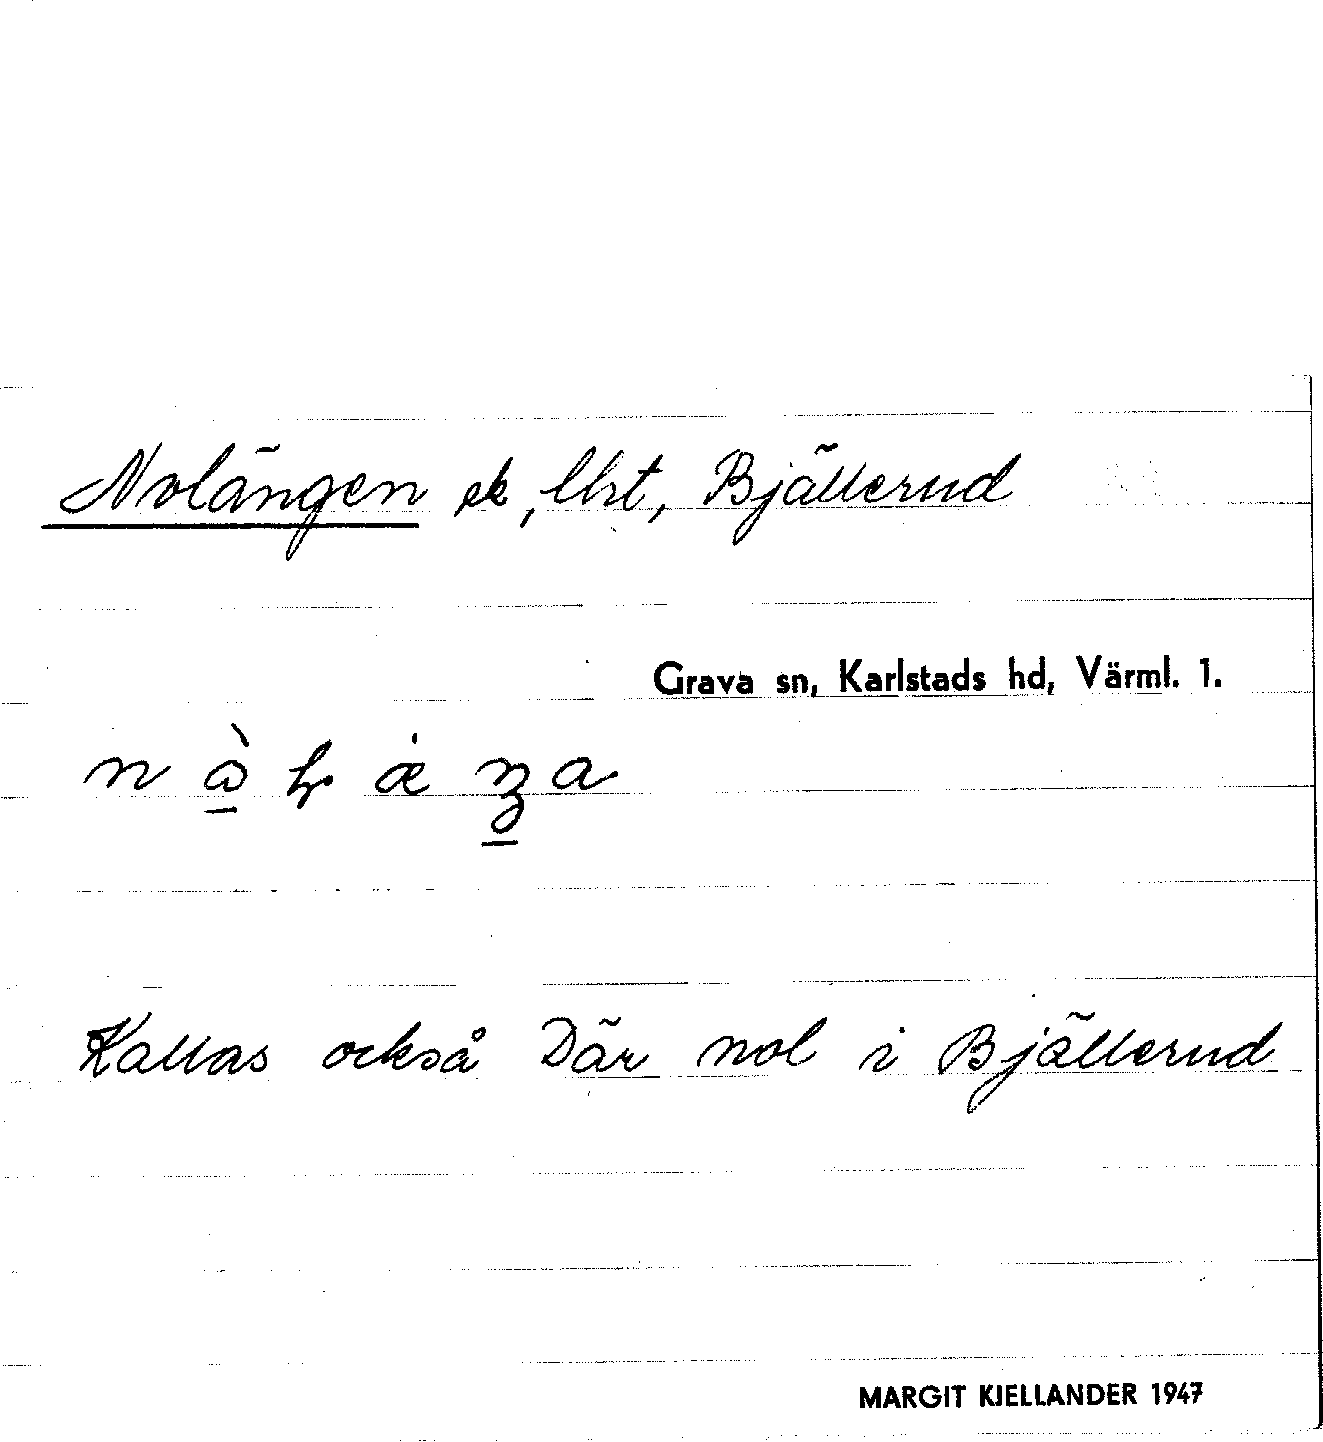 Nolängen ek, lht, Bjällerud
Grava sn, Karlstads hd, Värml. 1.
Kallas också Där nol i Bjällerud
MARGIT KJELLANDER 1947